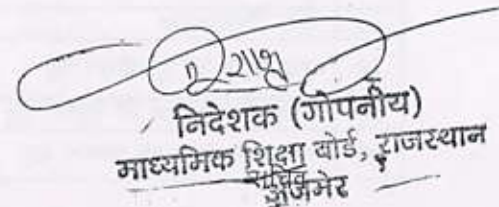 निदेशक (गोपनीय)
माध्यमिक शिक्षा बोर्ड, राजस्थान
सचिव
अजमेर